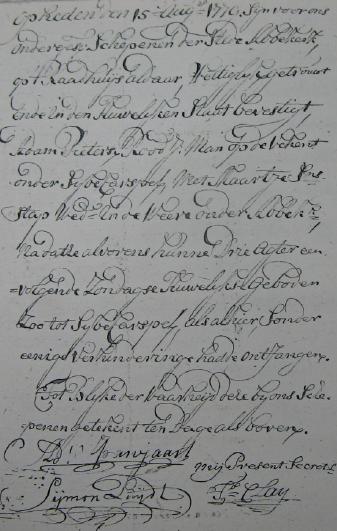 op Heden den 15 Aug:t 1770. Sijn voor ons
ondergesz: Schepenen der Stede Abbekerk,
op 't Raadhuijs aldaar, Wettigh getrouwt
ende in den Huwelijken Staat bevestigt,
Adam Pietersz Rood J: Man op de Weeent
onder Sijbecarspel, Met Maartie Jans
Stap Wed: in de Weere onder Abbek:
Nadatse alvorens hunne Drie agter een
=volgende Zondagse Huwelijkse Geboden
Zoo tot Sijbecarspel, als alhier, Sonder
eenige verhinderinge hadde ontfangen.
Tot blijk der Waarheijd dese bij ons Sche=
penen getekent ten Dage als boven.
mij Present Secret:
Sijmon